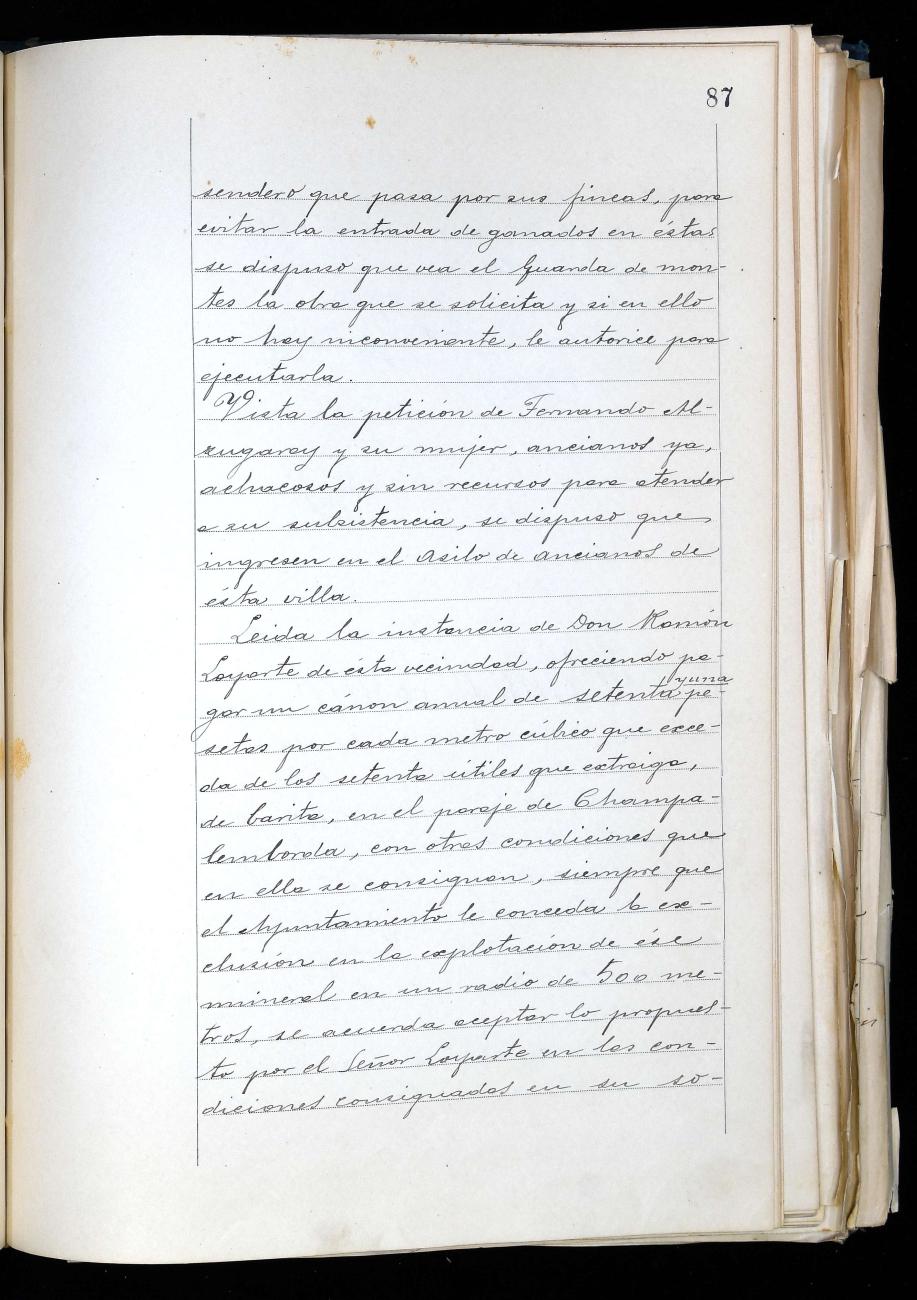 87
sendero que pasa por sus fincas, para
evitar la entrada de ganados en éstas
se dispuso que vea el Guarda de mon-
tes la obra que se solicita y si en ello
no hay inconveniente, le autorice para
ejecutarla.
Vista la petición de Fernando Al-
zugaray y su mujer, ancianos ya,
achacosos y sin recursos para atender
a su subsistencia, se dispuso que
ingresen en el Asilo de ancianos de
ésta villa.
Leida la instancia de Don Ramón
Loyarte de ésta vecindad, ofreciendo pa-
gar un cánon anual de setenta y una pe-
setas por cada metro cúbico que exce-
da de los setenta útiles que extraiga,
de barita, en el paraje de Champa-
lemborda, con otras condiciones que
en ella se consignan, siempre que
el Ayuntamiento le conceda la ex-
clusión en la explotación de ése
mineral en un radio de 500 me-
tros, se acuerda aceptar lo propues-
to por el Señor Loyarte en las con-
diciones consignadas en su so-